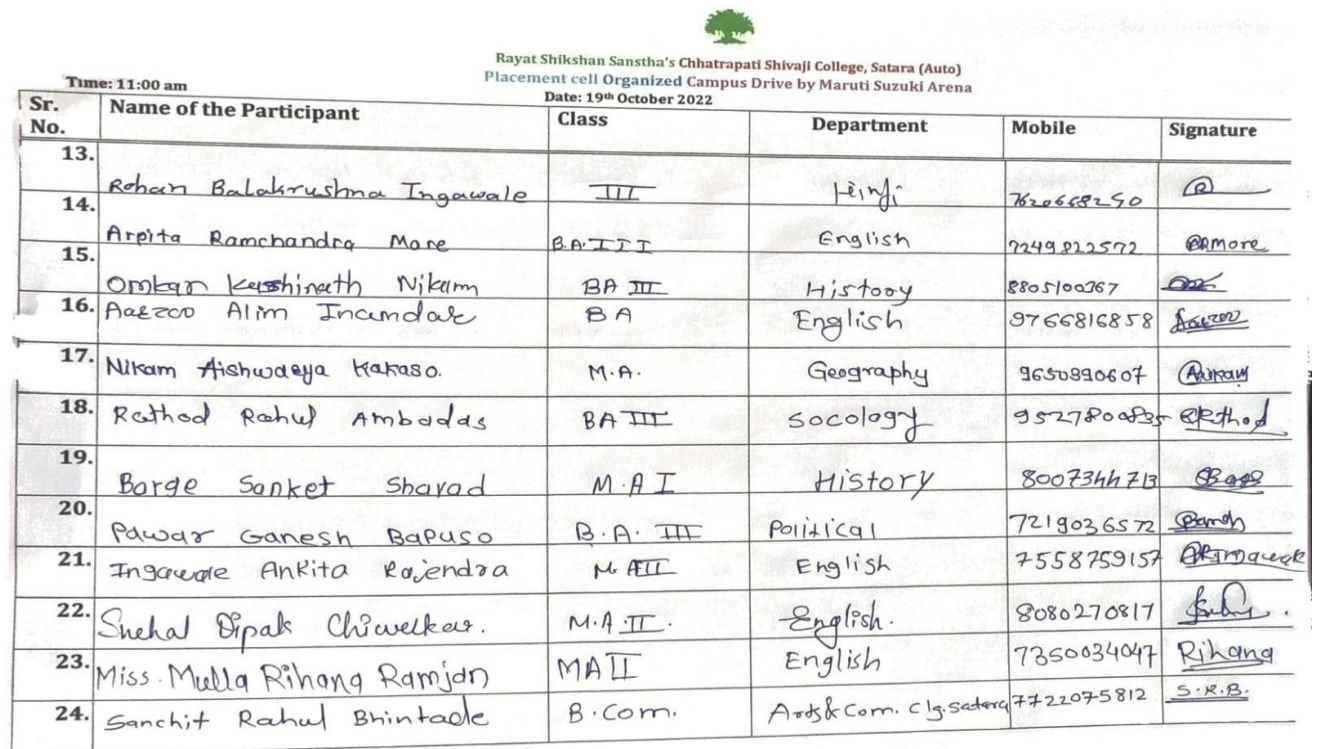 Rayat Shikshan Sanstha's Chhatrapati Shivaji College, Satara (Auto)
Placement cell Organized Campus Drive by Maruti Suzuki Arena
Time: 11:00 am Date: 19th October 2022
Sr. No. Name of the Participant Class Department Mobile Signature
13. Rohan Balakrushna Ingawale III Hindi 7620668290
14. Arpita Ramchandra More B.A.III English 7249822572 ARmore
15. Omkar Kashinath Nikam BA III History 8805100367
16. Aarzoo Alim Inamdar BA English 9766816858 Aarzoo
17. Nikam Aishwarya Kakaso. M.A. Geography 9650890607 Anikam
18. Rathod Rahul Ambadas BA III Socology 9527800835 Rathod
19. Barge Sanket Sharad M.A I History 8007344713
20. Pawar Ganesh Bapuso B.A. III Political 7219036572
21. Ingawale Ankita Rajendra M.AII English 7558759157 ARIngawale
22. Snehal Dipak Chiwelkar. M.A.II. English. 8080270817
23. Miss. Mulla Rihana Ramjan MA II English 7350034047 Rihana
24. Sanchit Rahul Bhintade B.Com. Arts & Com. Clg. Satara 7722075812 S.R.B.